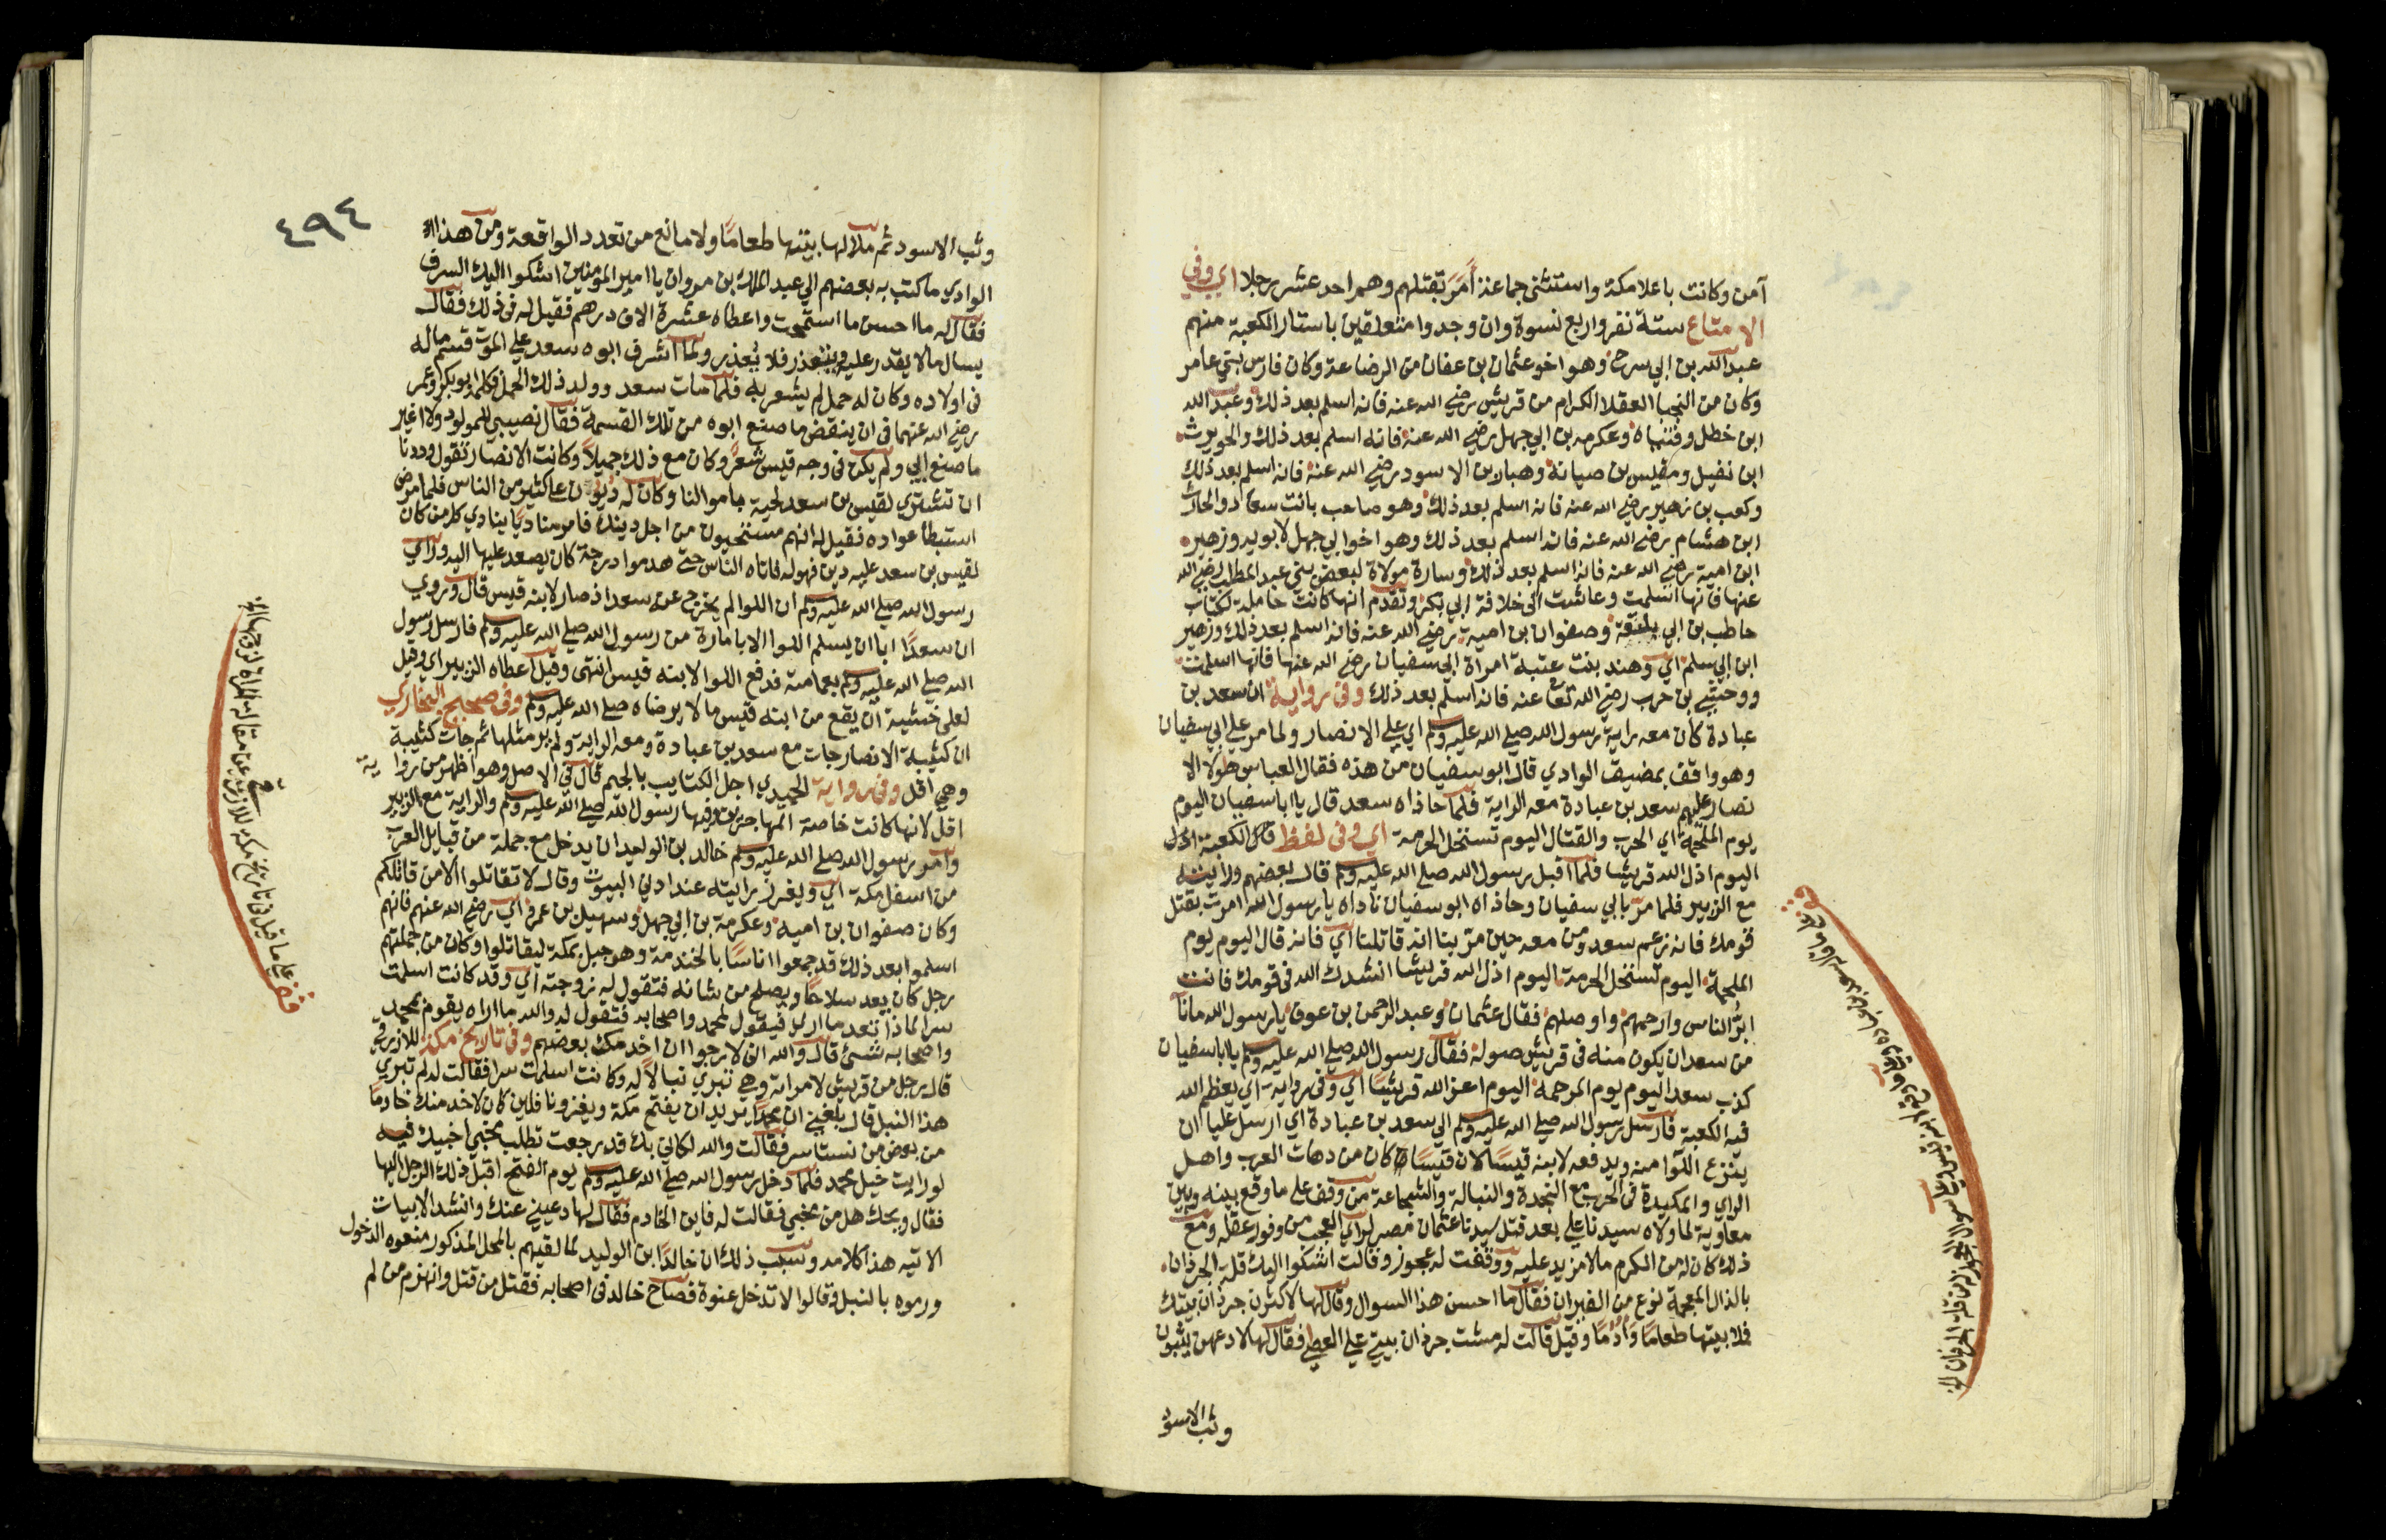 آمن وكانت باعلا مكة واستثنى جماعة أمر بقتلهم وهم احد عشر رجلا اي وفي
الامتاع ستة نفر واربع نسوة وان وجدوا متعلقين باستار الكعبة منهم
عبد الله بن ابي سرح وهو اخو عثمان بن عفان من الرضاعة وكان فارس بني عامر
وكان من النجبا العقلا الكرام من قريش رضي الله عنه فانه اسلم بعد ذلك وعبد الله
ابن خطل وقينتاه وعكرمه بن ابي جهل رضي الله عنه فانه اسلم بعد ذلك والحويرث
ابن نفيل ومقيس بن صبابة وهبار بن الاسود رضي الله عنه فانه اسلم بعد ذلك
وكعب بن زهير رضي الله عنه فانه اسلم بعد ذلك وهو صاحب بانت سعاد والحارث
ابن هشام رضي الله عنه فانه اسلم بعد ذلك وهو اخو ابي جهل لابويه وزهير
ابن امية رضي الله عنه فانه اسلم بعد ذلك وسارة مولاة لبعض بني عبد المطلب رضي الله
عنها فانها اسلمت وعاشت الى خلافة ابي بكر وتقدم انها كانت حاملة لكتاب
حاطب بن ابي بلتعة وصفوان بن امية رضي الله عنه فانه اسلم بعد ذلك وزهير
ابن ابي سلمة اي وهند بنت عتبة امراة ابي سفيان رضي الله عنها فانها اسلمت
ووحشي بن حرب رضي الله تعا عنه فانه اسلم بعد ذلك وفي رواية ان سعد بن
عبادة كان معه راية رسول الله صلي الله عليه وسلم اي علي الانصار ولما مر علي ابي سفيان
وهو واقف بمضيق الوادي قال ابو سفيان من هذه فقال العباس هولا الا
نصار عليهم سعد بن عبادة معه الراية فلما حاذاه سعد قال يا ابا سفيان اليوم
يوم الملحمة اي الحرب والقتال اليوم تستحل الحرمة اي وفي لفظ الكعبة
اليوم اذل الله قريشا فلما اقبل رسول الله صلي الله عليه وسلم قال بعضهم ورايته
مع الزبير فلما مر بابي سفيان وحاذاه ابو سفيان ناداه يا رسول الله امرت بقتل
قومك فانه زعم سعد ومن معه حين مر بنا انه قاتلنا اي فانه قال اليوم يوم
الملحمة اليوم تستحل الحرمة اليوم اذل الله قريشا انشدك الله في قومك فانت
ابر الناس وارحمهم واوصلهم فقال عثمان وعبد الرحمن بن عوف يا رسول الله ما نا
من سعد ان يكون منه في قريش صولة فقال رسول الله صلي الله عليه وسلم يا ابا سفيان
كذب سعد اليوم يوم المرحمة اليوم اعز الله قريشا اي وفي رواية اي يعظم الله
فيه الكعبة فارسل رسول الله صلي الله عليه وسلم الي سعد بن عبادة اي ارسل عليا ان
ينزع اللوا منه ويدفعه لابنه قيسا لان قيسا كان من دهات العرب واهل
الراي والمكيدة في الحرب مع النجدة والنبالة والشجاعة من وقف علي ما وقع بينه وبين
معاوية لما ولاه سيدنا علي بعد قتل سيدنا عثمان مصر لراي العجب من وفور عقله ومع
ذلك كان له من الكرم ما لا مزيد عليه ووقفت له عجوز وقالت اشكوا اليك قلة الجرذان
بالذال المعجمة نوع من الفيران فقال ما احسن هذا السوال وقال لها لاكثرن جرذان بيتك
فملا بيتها طعاما وادما وقيل قالت له مشت جرذان بيتي علي العصي فقال لها لادعهن يثبون
وثب الاسود
٤٩٤
وثب الاسود ثم ملا لها بيتها طعاما ولا مانع من تعدد الواقعة ومن هذا
الوادي ما كتب به بعضهم الي عبد الملك بن مروان يا امير المومنين اشكوا اليك الشرف
فقال له ما احسن ما استمحت واعطاه عشرة الاف درهم فقيل له في ذلك فقال
يسال ما لا يقدر عليه ويتعذر فلا يعذر ولما اشرف ابوه سعد علي الموت قسم ماله
في اولاده وكان له حمل لم يشعر به فلما مات سعد وولد ذلك الحمل فكلم ابو بكر وعمر
رضي الله عنهما في ان ينقض ما صنع ابوه من تلك القسمة فقال نصيبي للمولود ولا اغير
ما صنع ابي ولم يكن في وجه قيس شعر وكان مع ذلك جميلا وكانت الانصار تقول وددنا
ان نشتري لقيس بن سعد لحية باموالنا وكان له ديون علي كثير من الناس فلما مرض
استبطأ عواده فقيل له انهم مستحيون من اجل دينك فامر مناديا ينادي كل من كان
لقيس بن سعد عليه دين فهو له فاتاه الناس حتى هدموا درجة كان يصعد عليها اليه وراي
رسول الله صلي الله عليه وسلم ان اللوا لم يخرج عن سعد اذ صار لابنه قيس قال وروي
ان سعدا ابا ان يسلم اللوا الا بامارة من رسول الله صلي الله عليه وسلم فارسل رسول
الله صلي الله عليه وسلم بعمامته فدفع اللوا لابنه قيس انتهى وقيل اعطاه الزبير اي وقيل
لعلي خشية ان يقع من ابنه قيس ما لا يرضاه صلي الله عليه وسلم وفي صحيح البخاري
ان كتيبة الانصار جات مع سعد بن عبادة ومعه الراية ولم ير مثلها ثم جات كتيبة
وهي اقل وفي رواية الحميدي اجل الكتايب بالجيم قال في الاصل وهو اظهر من رواية
اقل لانها كانت خاصة المهاجرين وفيها رسول الله صلي الله عليه وسلم والراية مع الزبير
وامر رسول الله صلي الله عليه وسلم خالد بن الوليد ان يدخل مع جملة من قبايل العرب
من اسفل مكة اي ويغرز رايته عند ادني البيوت وقال لا تقاتلوا الا من قاتلكم
وكان صفوان بن امية وعكرمة بن ابي جهل وسهيل بن عمرو اي رضي الله عنهم فانهم
اسلموا بعد ذلك قد جمعوا اناسا بالخندمة وهو جبل بمكة ليقاتلوا وكان من جملتهم
رجل كان يعد سلاحا ويصلح من شانه فتقول له زوجته اي وقد كانت اسلمت
سرا لماذا تعد ما اري فيقول لمحمد واصحابه فتقول له والله ما اراه يقوم لمحمد
واصحابه شيء قال والله اني لارجوا ان اخدمك بعضهم وفي تاريخ مكة للازرقي
قال رجل من قريش لامراته وهي تبري نبالا له وكانت اسلمت سرا فقالت له لم تبري
هذا النبل قال بلغني ان محمدا يريد ان يفتح مكة ويغزونا فلين كان لاخدمنك خادما
من بعض من نستاسر فقالت والله لكاني بك قد رجعت تطلب مخبي اخبيك فيه
لو رايت خيل محمد فلما دخل رسول الله صلي الله عليه وسلم يوم الفتح اقبل ذلك الرجل اليها
فقال ويحك هل من مخبي فقالت له فاين الخادم فقال لها دعيني عنك وانشد الابيات
الاتيه هذا كلامه وسبب ذلك ان خالدا ابن الوليد لما لقيهم بالمحل المذكور منعوه الدخول
ورموه بالنبل وقالوا لا تدخل عنوة فصاح خالد في اصحابه فقتل من قتل وانهزم من لم